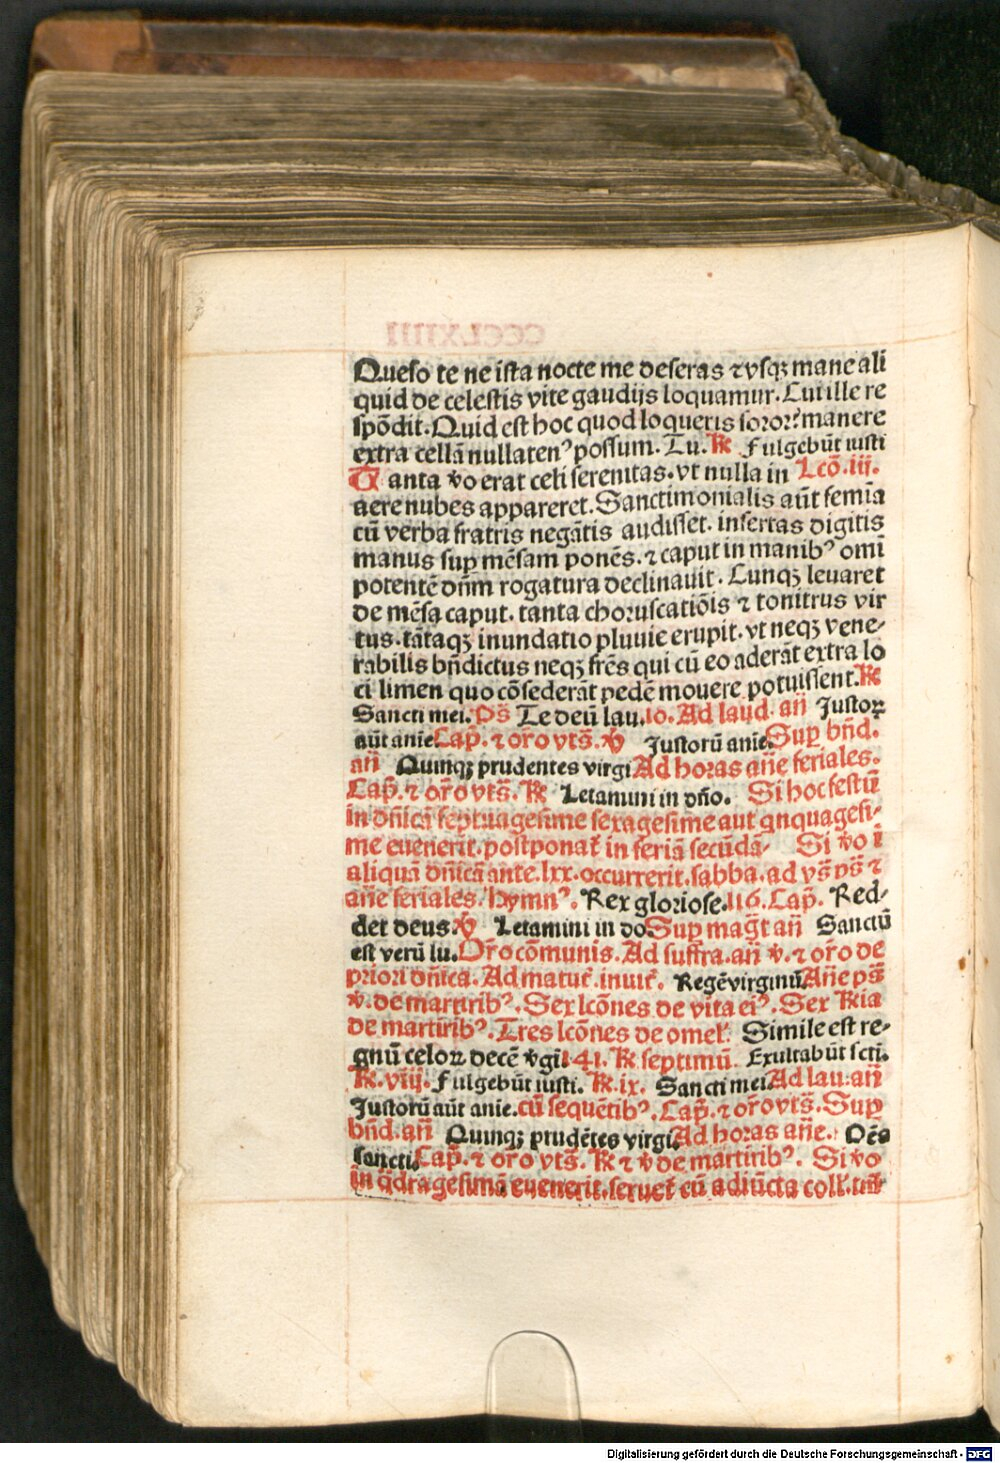 Queso te ne ista nocte me deseras ⁊ vsqȝ mane ali
quid de celestis vite gaudijs loquamur. Cui ille re
spōdit. Quid est hoc quod loqueris soror? manere
extra cellā nullatenꝰ possum. Tu. ℟ Fulgebūt iusti
Tanta v̄o erat celi serenitas. vt nulla in Lcō. iij.
aere nubes appareret. Sanctimonialis aūt femīa
cū verba fratris negātis audisset. insertas digitis
manus suꝑ mēsam ponēs. ⁊ caput in manibꝰ omī
potentē dn̄m rogatura declinauit. Cunqȝ leuaret
de mēsa caput. tanta choruscatiōis ⁊ tonitrus vir
tus. tātaqȝ inundatio pluuie erupit. vt neqȝ vene-
rabilis bn̄dictus neqȝ fr̄es qui cū eo aderāt extra lo
ci limen quo cōsederāt pedē mouere potuissent. ℟
Sancti mei. Ps̄ Te deū lau. 10. Ad laud. an̄ Justoꝝ
aūt anie. Cap̄. ⁊ or̄o vts̄. ℣ Justorū anie. Suꝑ bn̄d.
an̄ Quinqȝ prudentes virgi Ad horas an̄e feriales.
Cap̄. ⁊ or̄o vts̄. ℟ Letamini in dn̄o. Si hoc festū
in dn̄ica septuagesime sexagesime aut qnquagesi-
me euenerit. postponat̄ in feriā secūdā. Si v̄o ī
aliquā dn̄icā ante. lxx. occurrerit. sabba. ad vs̄ ps̄ ⁊
an̄e feriales. Hymnꝰ. Rex gloriose. 116. Cap̄. Red-
det deus ℣ Letamini in do Suꝑ mag̅t an̄ Sanctū
est verū lu. Or̄o cōmunis. Ad suffra. an̄ ℣. ⁊ or̄o de
priori dn̄ica. Ad matut̄. inuit̄. Regē virginū An̄e ps̄
℣. de martiribꝰ. Sex lcōnes de vita eiꝰ. Sex ℟ia
de martiribꝰ. Tres lcōnes de omel. Simile est re-
gnū celoꝝ decē v̄gi 141. ℟ septimū Exultabūt scti.
℟. viij. Fulgebūt iusti. ℟. ix. Sancti mei Ad lau. an̄
Justorū aūt anie. cū sequētibꝰ. Cap̄. ⁊ or̄o vts̄. Suꝑ
bn̄d. an̄ Quinqȝ prudētes virgi. Ad horas an̄e. Oēs
sancti. Cap̄. ⁊ or̄o vts̄. ℟ ⁊ ℣ de martiribꝰ. Si v̄o
in q̄dragesimā euenerit. seruet̄ cū adiūcta coll. tn̄
Digitalisierung gefördert durch die Deutsche Forschungsgemeinschaft - DFG